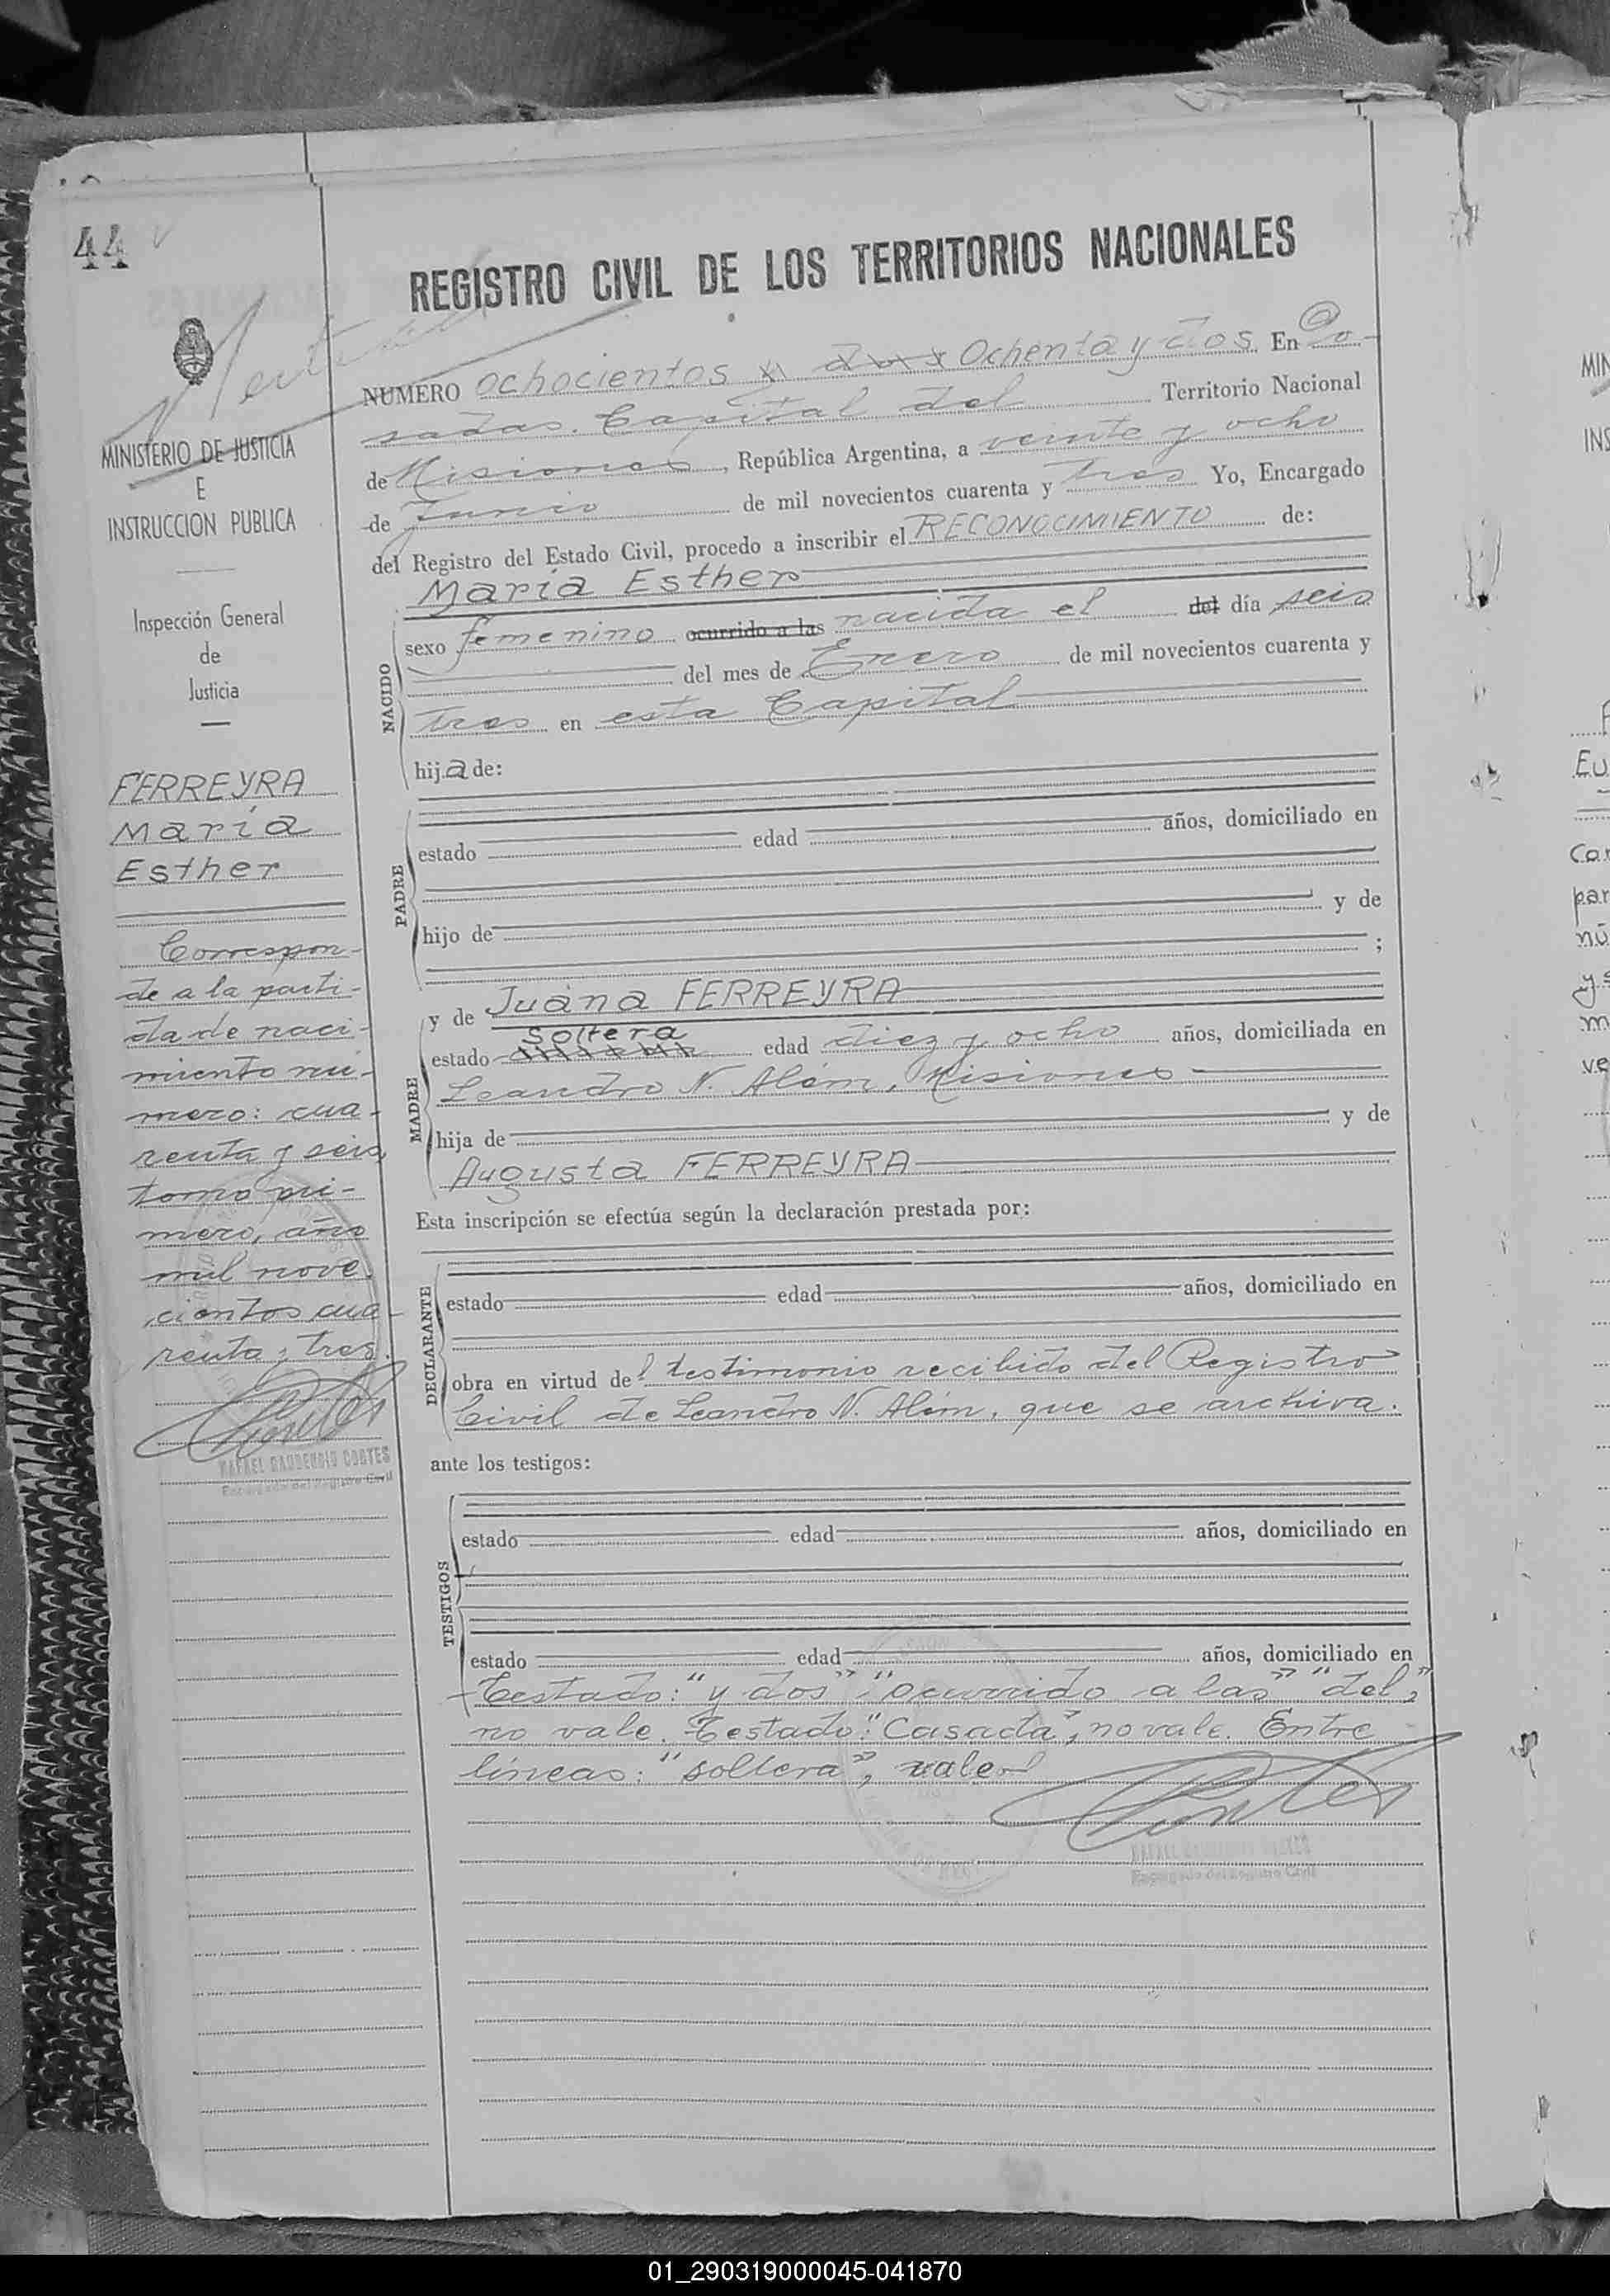 44
REGISTRO CIVIL DE LOS TERRITORIOS NACIONALES
MINISTERIO DE JUSTICIA
E
INSTRUCCION PUBLICA
Inspección General
de
Justicia
FERREYRA
María
Esther
Correspon-
de a la parti-
da de naci-
miento nú-
mero: cua-
renta y seis,
tomo pri-
mero, año
mil nove
cientos cua-
renta y tres.
RAFAEL GAUDENCIO CORTES
Encargado del Registro Civil
NUMERO ochocientos y dos Ochenta y dos En Po-
sadas. Capital del Territorio Nacional
de Misiones, República Argentina, a veinte y ocho
de Junio de mil novecientos cuarenta y tres Yo, Encargado
del Registro del Estado Civil, procedo a inscribir el RECONOCIMIENTO de:
María Esther
NACIDO
sexo femenino ocurrido a las nacida el del día seis
del mes de Enero de mil novecientos cuarenta y
tres en esta Capital
hija de:
PADRE
estado edad años, domiciliado en
hijo de y de
;
MADRE
y de Juana FERREYRA
soltera
estado edad diez y ocho años, domiciliada en
Leandro N. Além, Misiones
hija de y de
Augusta FERREYRA
Esta inscripción se efectúa según la declaración prestada por:
DECLARANTE
estado edad años, domiciliado en
obra en virtud del testimonio recibido del Registro
Civil de Leandro N. Além, que se archiva.
ante los testigos:
TESTIGOS
estado edad años, domiciliado en
estado edad años, domiciliado en
Testado: "y dos" "ocurrido a las" "del",
no vale. Testado: "Casada", no vale. Entre
líneas: "soltera", vale
RAFAEL GAUDENCIO CORTES
Encargado del Registro Civil
01_290319000045-041870